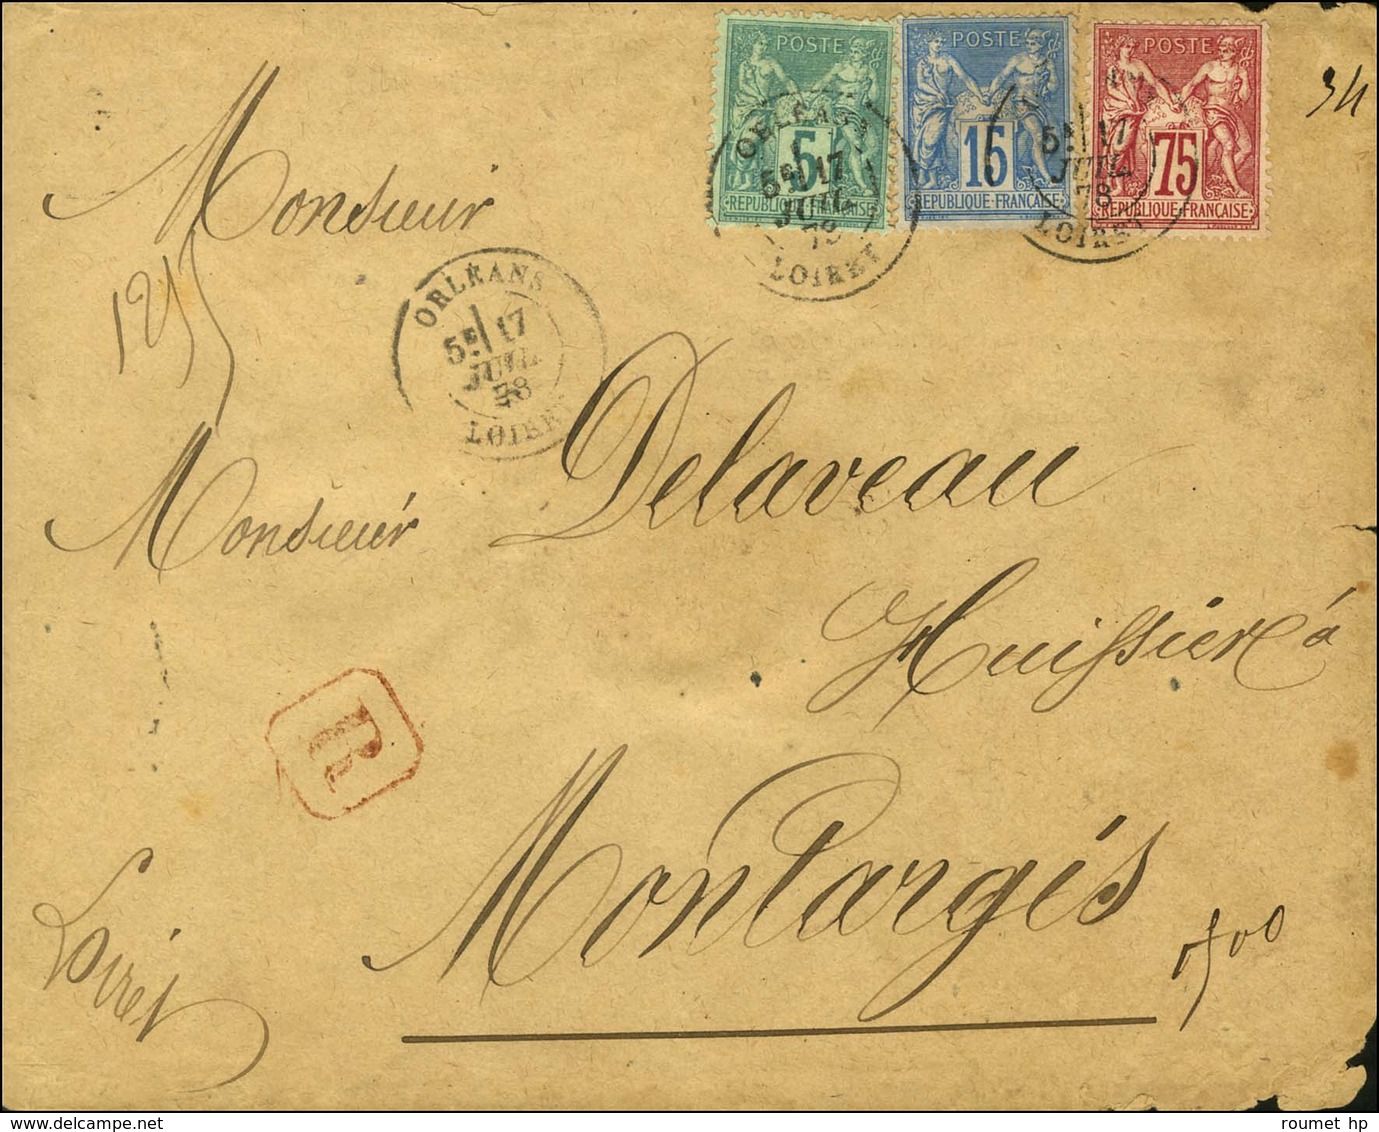 POSTE
5
REPUBLIQUE FRANÇAISE
POSTE
15
REPUBLIQUE FRANÇAISE
POSTE
75
REPUBLIQUE FRANÇAISE
ORLÉANS
5E 17
JUIL
78
LOIRET
5E 17
JUIL
78
LOIRET
34
Monsieur
125
ORLÉANS
5E 17
JUIL
78
LOIRET
Monsieur Delaveau
Huissier à
R
Montargis
Loiret
roumet hp